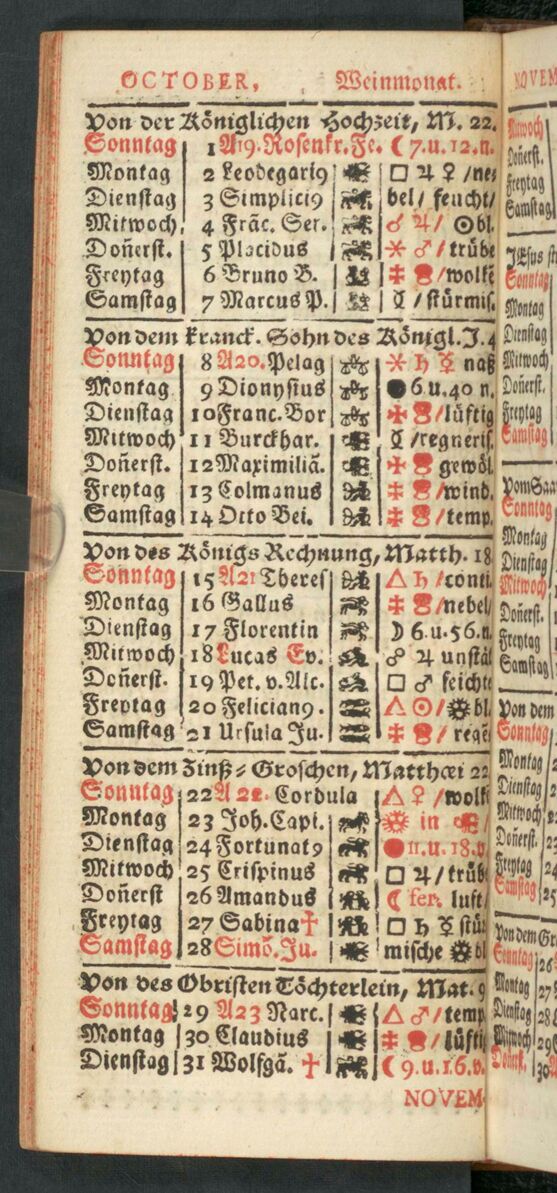 OCTOBER, Weinmonat.
Von der Königlichen Hochzeit, M. 22.
Sonntag 1 A19. Rosenkr. Fe. ☾ 7. u. 12. n.
Montag 2 Leodegari9 □ ♃ ♀ /ne=
Dienstag 3 Simplici9 bel/ feucht/
Mitwoch, 4 Frãc. Ser. ☌ ♃/ ☉ bl.
Doñerst. 5 Placidus ⚹ ♂ / trübe
Freytag 6 Bruno B. /wolkẽ
Samstag 7 Marcus P. /stürmis.
Von dem kranck. Sohn des Königl. J. 4
Sonntag 8 A20. Pelag ⚹ ♄ ☿ naß
Montag 9 Dionysius ● 6. u. 40 n.
Dienstag 10 Franc. Bor /lüftig
Mitwoch 11 Burckhar. /regneris.
Doñerst. 12 Maximiliã. gewöl.
Freytag 13 Colmanus /wind.
Samstag 14 Otto Bei. /temp.
Von des Königs Rechnung, Matth. 18
Sonntag 15 A21 Theres △ ♄ /conti.
Montag 16 Gallus /nebel/
Dienstag 17 Florentin ☽ 6. u. 56. n.
Mitwoch 18 Lucas Ev. ☍ ♃ unstäl
Doñerst. 19 Pet. v. Alc. □ ♂ feichte
Freytag 20 Felician9. △ ☉ / bl.
Samstag 21 Ursula Ju. / regẽ
Von dem Zinß=Groschen, Matthæi 22
Sonntag 22 A 22. Cordula △ ♀ /wolk
Montag 23 Joh. Capi. in
Dienstag 24 Fortunat9 11. u. 18.
Mitwoch 25 Crispinus □ ♃ / trüb
Doñerst 26 Amandus ☾ fer. luft/
Freytag 27 Sabina † □ ♄ ☿ stü
Samstag 28 Simõ. Ju. mische bl
Von des Obristen Töchterlein, Mat. 9
Sonntag 29 A23 Narc. △ ♂ / temp
Montag 30 Claudius / lüfti
Dienstag 31 Wolfgã. † ☾ 9. u. 16. v.
NOVEM
NOVEM
Mitwoch
Doñerst.
Freytag
Samstag
JEsus
Sonntag
Montag
Dienstag
Mitwoch
Doñerst.
Freytag
Samstag
Vom Saa
Sonntag
Montag
Dienstag
Mitwoch
Doñerst.
Freytag
Samstag
Von dem
Sonntag
Montag
Dienstag
Mitwoch
Doñerst.
Freytag
Samstag 25
Von dem Gr
Sonntag 26
Montag 27
Dienstag 28
Mitwoch 29
Doñerst. 30